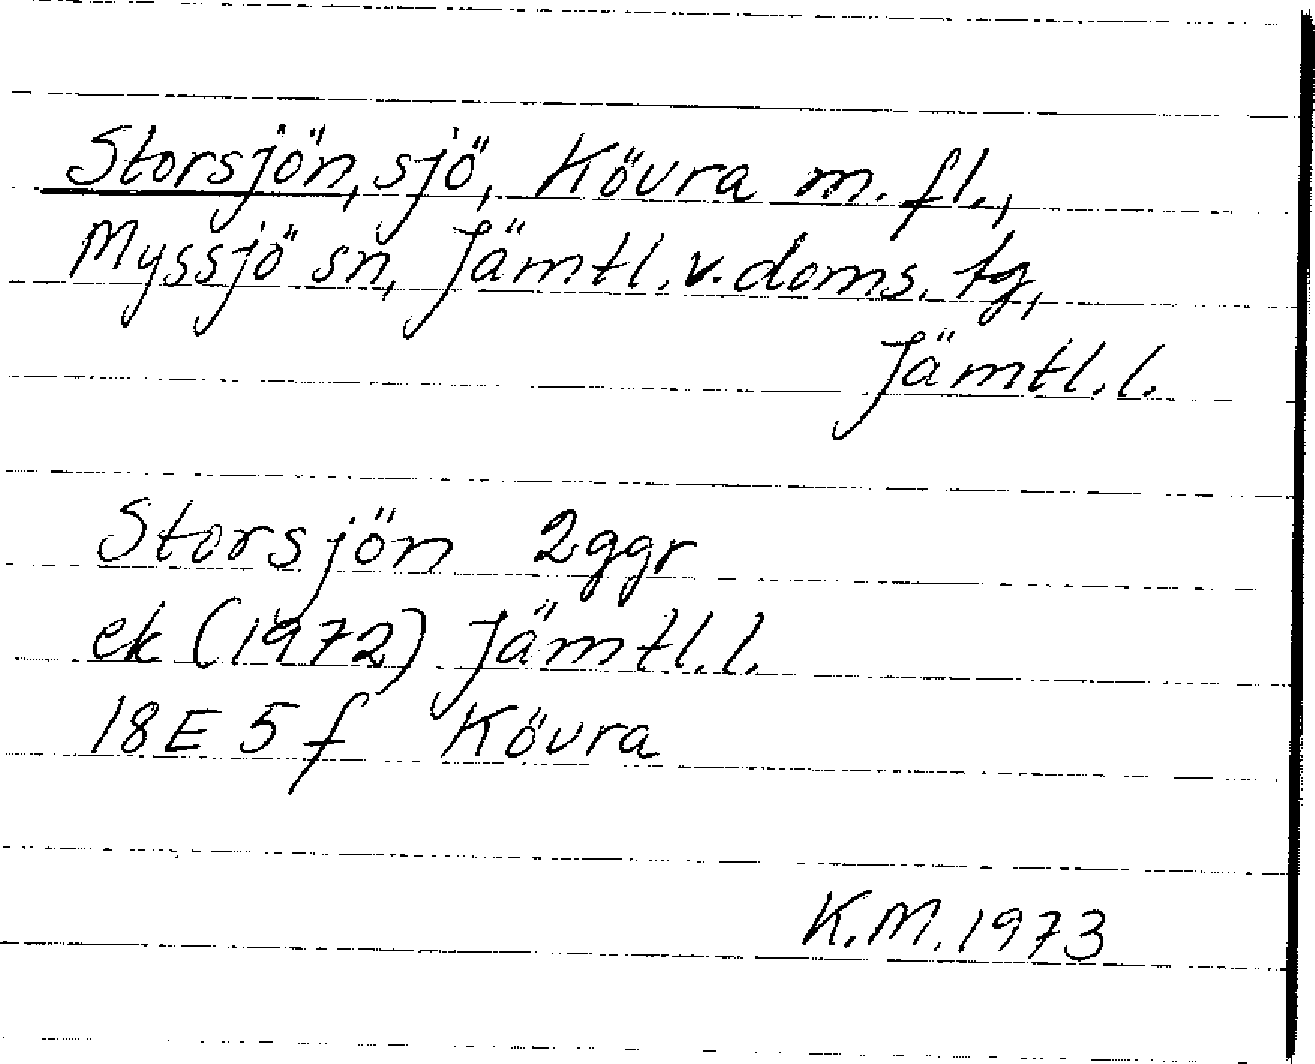 Storsjön, sjö, Kövra m.fl.,
Myssjö sn, Jämtl.v.doms.tg,
Jämtl.l.
Storsjön 2ggr
ek (1972) Jämtl.l.
18E 5f Kövra
K.M.1973